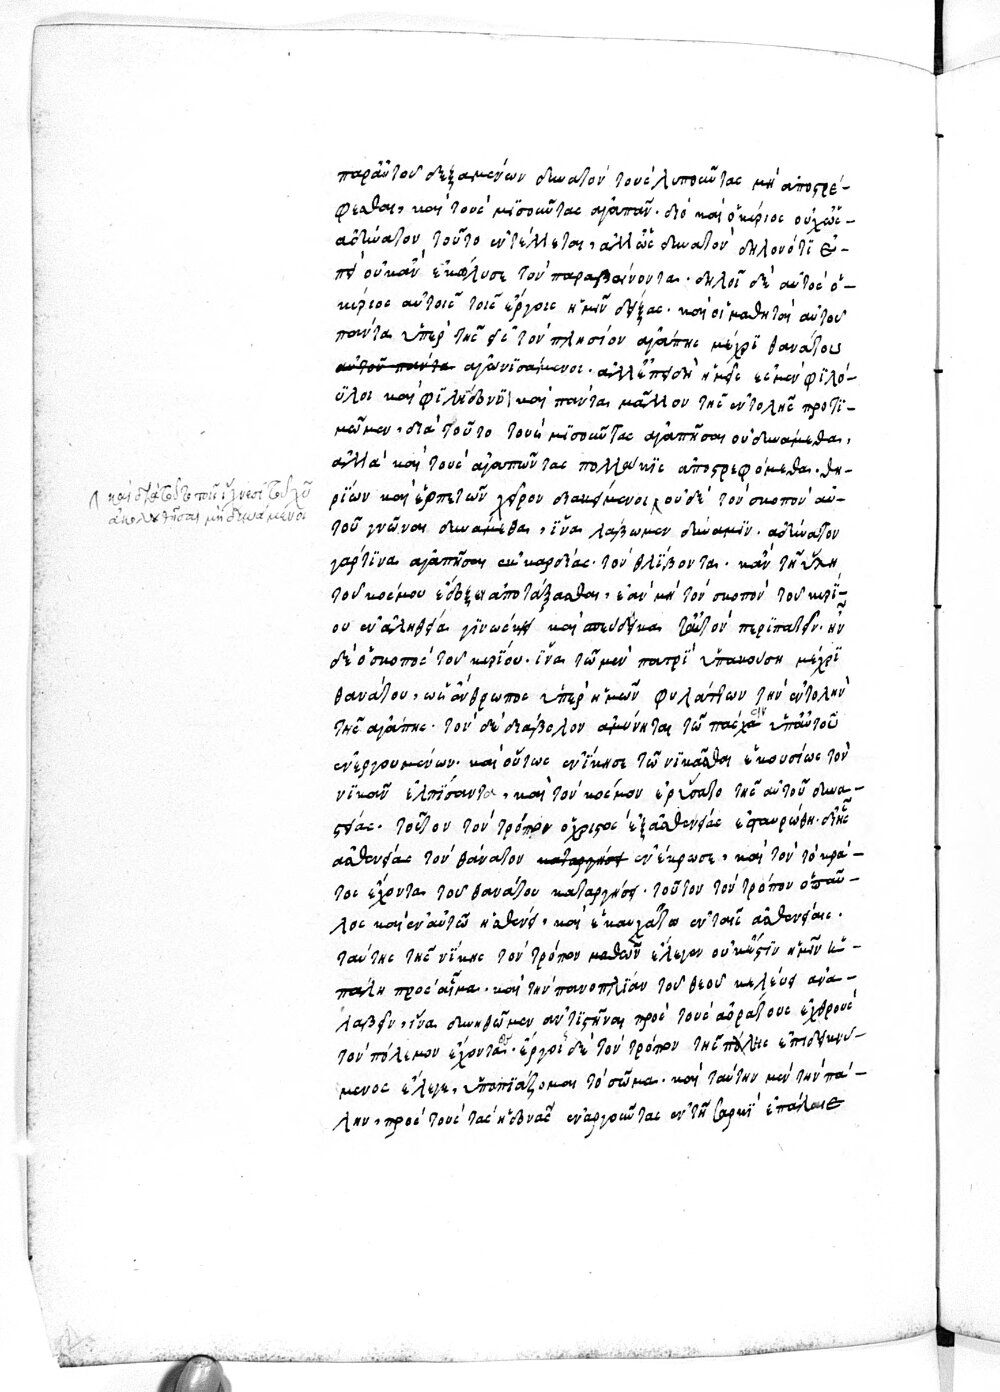 παρ' αὐτοῦ δεξαμένων δυνατὸν τοὺς λυποῦντας μὴ ἀποστρέ-
φεσθαι, καὶ τοὺς μισοῦντας ἀγαπᾶν. διὸ καὶ ὁ κύριος οὐχ ὡς
ἀδύνατον τοῦτο ἐντέλλεται, ἀλλ' ὡς δυνατὸν δηλονότι ἐ-
πεὶ οὐκ ἂν ἐκόλυσε τὸν παραβαίνοντα. δηλοῖ δὲ αὐτὸς ὁ
κύριος αὐτοῖς τοῖς ἔργοις ἡμῖν δείξας. καὶ οἱ μαθηταὶ αὐτοῦ
πάντα ὑπὲρ τῆς εἰς τὸν πλησίον ἀγάπης μέχρι θανάτου
αὐτοῦ πάντα ἀγωνισάμενοι. ἀλλ' ἐπειδὴ ἡμεῖς ἐσμὲν φιλό-
ϋλοι καὶ φιλήδονοι καὶ πάντα μᾶλλον τῆς ἐντολῆς προτι-
μῶμεν, διὰ τοῦτο τοὺς μισοῦντας ἀγαπῆσαι οὐ δυνάμεθα,
ἀλλὰ καὶ τοὺς ἀγαπῶντας πολλάκις ἀποστρεφόμεθα. θη-
ρίων καὶ ἑρπετῶν χεῖρον διακείμενοι
καὶ διὰ τοῦτο τοῖς ἴχνεσι τοῦ θῦ
ἀκολουθῆσαι μὴ δυνάμενοι
οὐδὲ τὸν σκοπὸν αὐ-
τοῦ γνῶναι δυνάμεθα, ἵνα λάβωμεν δύναμιν. ἀδύνατον
γάρ τινα ἀγαπῆσαι ἐκ καρδίας τὸν θλίβοντα. κἂν τῇ ὕλῃ
τοῦ κόσμου ἔδοξεν ἀποτάξασθαι, ἐὰν μὴ τὸν σκοπὸν τοῦ κυρί-
ου ἐν ἀληθείᾳ γινώσκῃ καὶ σπεύδῃ κατ' αὐτὸν περιπατεῖν. ἦν
δὲ ὁ σκοπὸς τοῦ κυρίου. ἵνα τῷ μὲν πατρὶ ὑπακούσῃ μέχρι
θανάτου, ὡς ἄνθρωπος ὑπὲρ ἡμῶν φυλάττων τὴν ἐντολὴν
τῆς ἀγάπης. τὸν δὲ διάβολον ἀμύνηται τῷ πάσχειν ὑπ' αὐτοῦ
ἐνεργουμένων. καὶ οὕτως ἐνίκησε τῷ νικᾶσθαι ἑκουσίως τὸν
νικᾶν ἐλπίσαντα, καὶ τὸν κόσμον ἐρύσατο τῆς αὐτοῦ δυνα-
στείας. τοῦτον τὸν τρόπον ὁ χριστὸς ἐξ ἀσθενείας ἐσταυρώθη. δι' ἧς
ἀσθενείας τὸν θάνατον καταργήσας ἐνέκρωσε, καὶ τὸν τὸ κρά-
τος ἔχοντα τοῦ θανάτου καταργήσῃ. τοῦτον τὸν τρόπον ὁ παῦ-
λος καὶ ἐν αὐτῷ ἠσθένει, καὶ ἐκαυχᾶτο ἐν ταῖς ἀσθενείαις.
ταύτης τῆς νίκης τὸν τρόπον μαθὼν ἔλεγεν οὐκ ἔστιν ἡμῖν ἡ
πάλη πρὸς αἷμα. καὶ τὴν πανοπλίαν τοῦ θεοῦ κελεύει ἀνα-
λαβεῖν, ἵνα δυνηθῶμεν ἀντιστῆναι πρὸς τοὺς ἀοράτους ἐχθροὺς
τὸν πόλεμον ἔχοντας. ἔργοις δὲ τὸν τρόπον τῆς πάλης ἐπιδεικνύ-
μενος ἔλεγε, ὑποπιάζομαι τὸ σῶμα. καὶ ταύτην μὲν τὴν πά-
λην, πρὸς τοὺς τὰς ἡδονὰς ἐνεργοῦντας ἐν τῇ σαρκὶ ἐπάλαιε